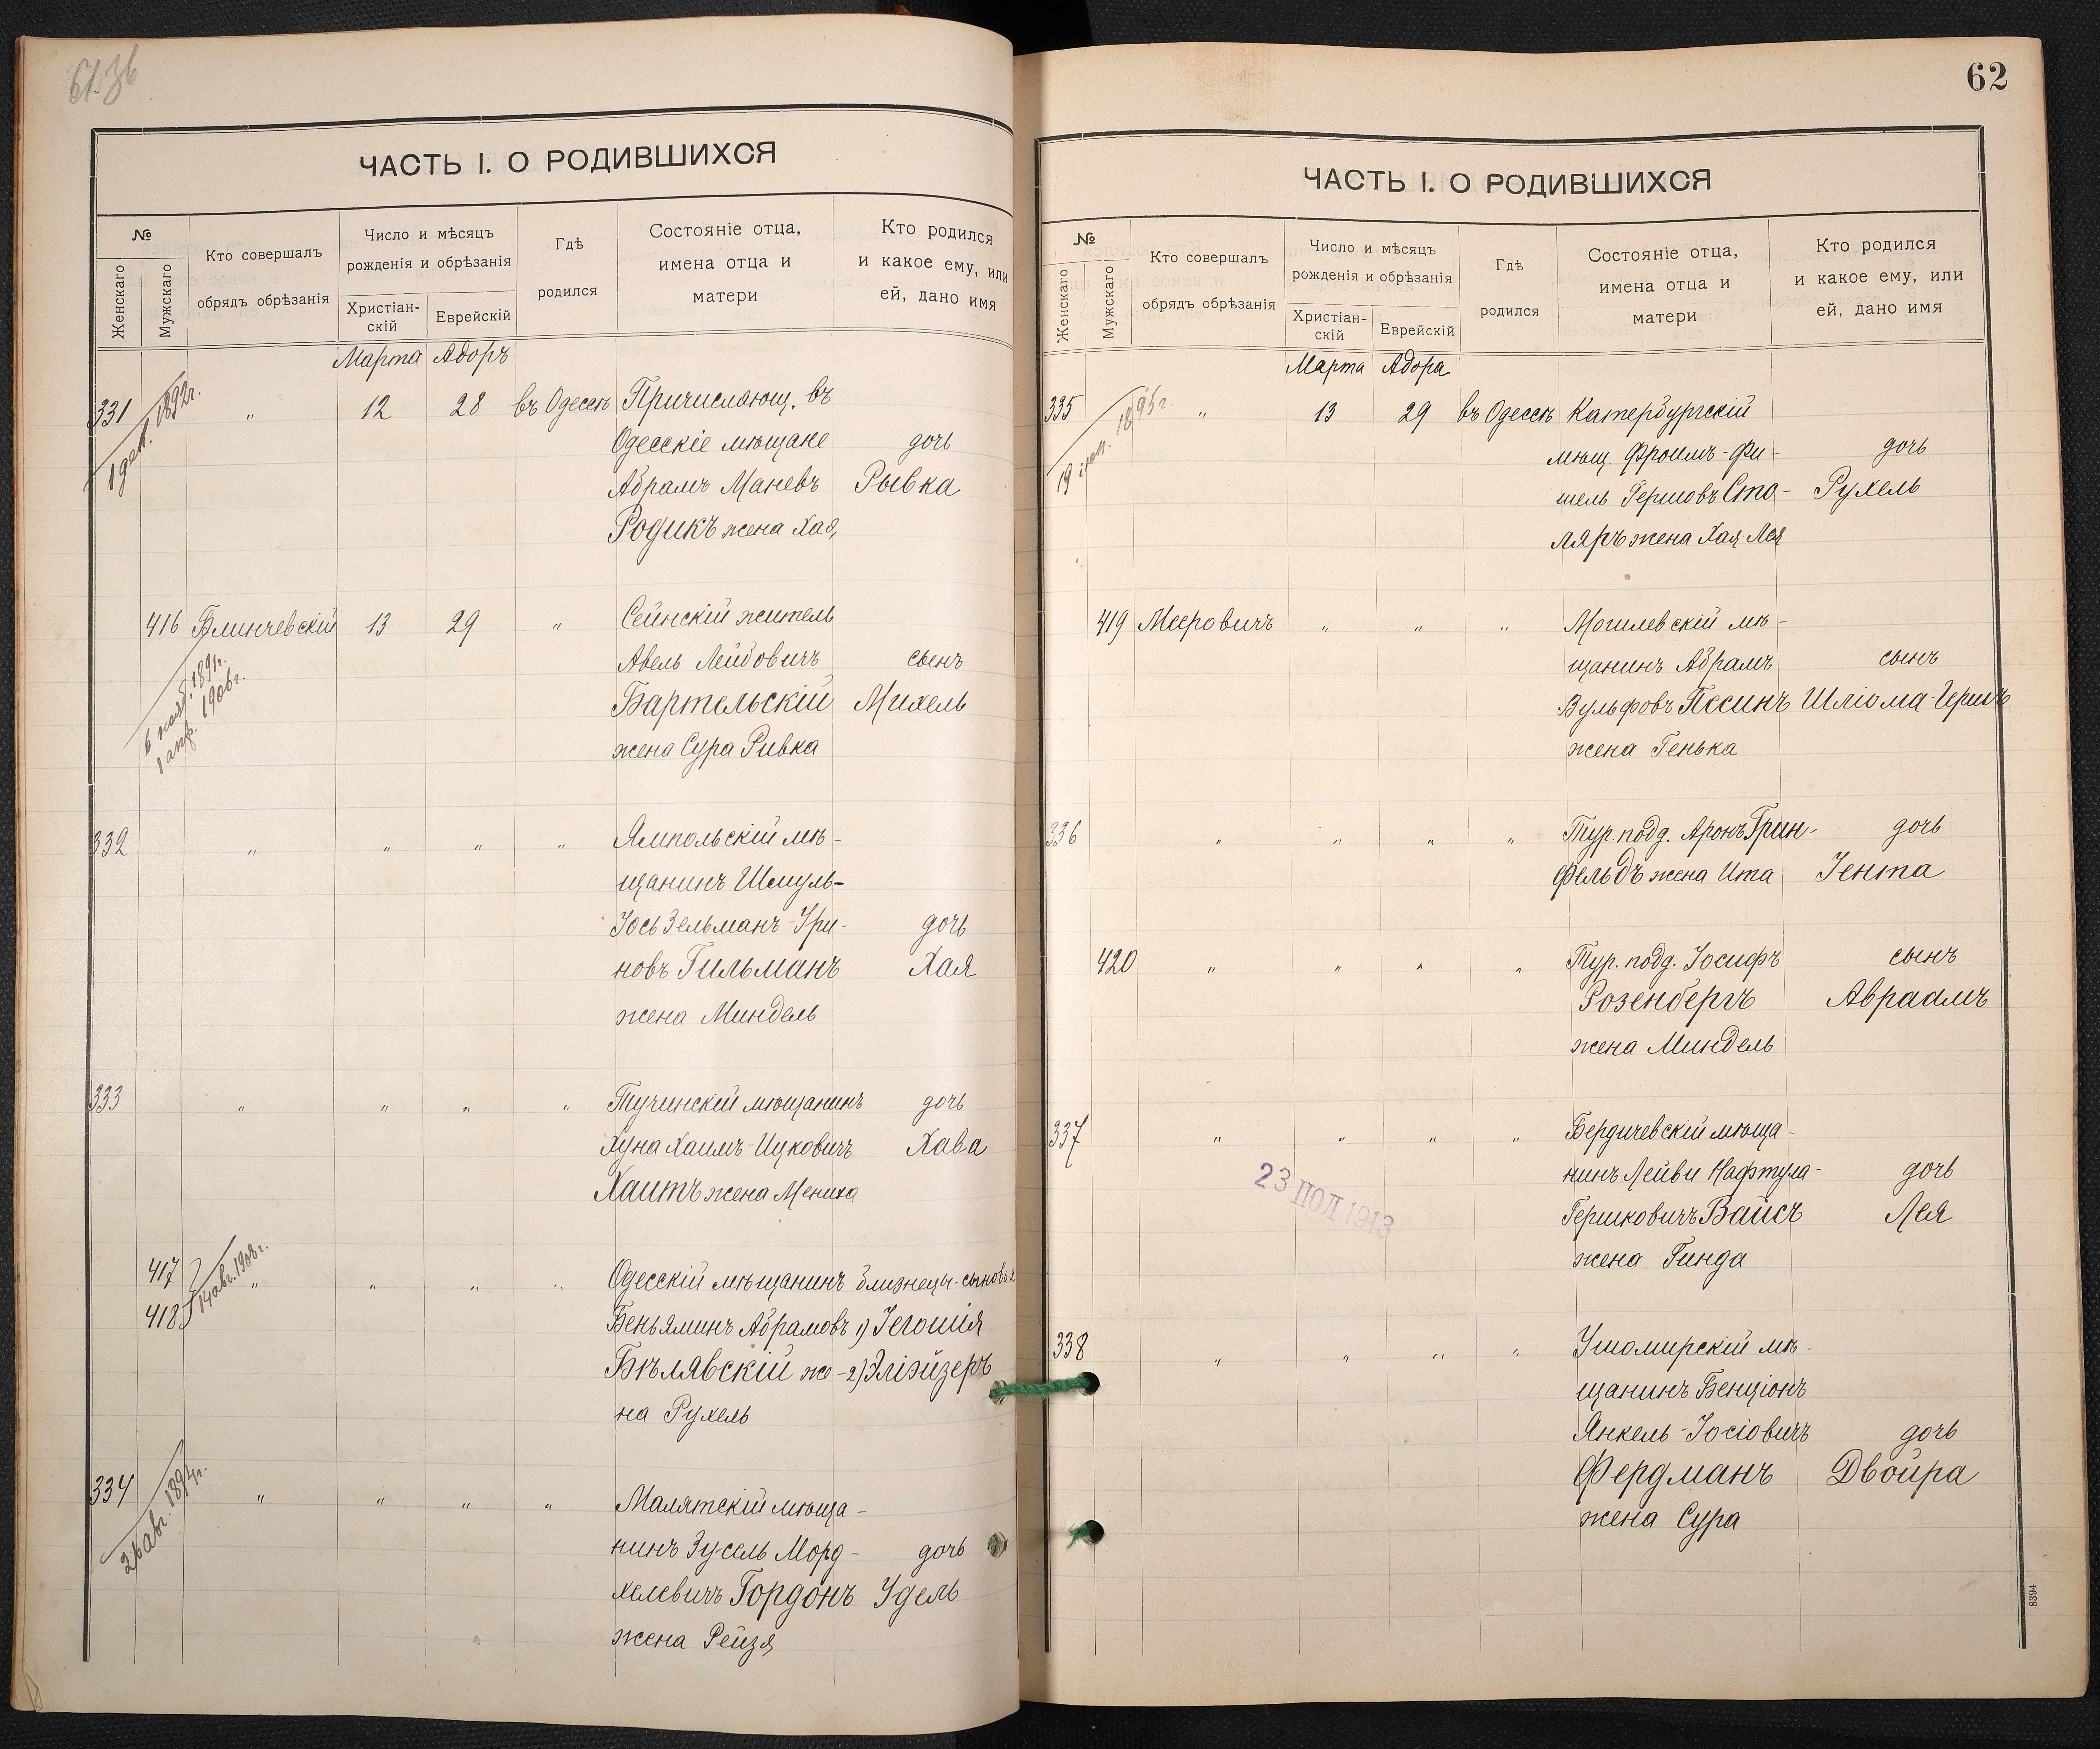 61 об
ЧАСТЬ I. О РОДИВШИХСЯ
№
Женскаго
Мужскаго
Кто совершалъ
обрядъ обрѣзанія
Число и мѣсяцъ
рожденія и обрѣзанія
Христіан-
скій
Еврейскій
Гдѣ
родился
Состояніе отца,
имена отца и
матери
Кто родился
и какое ему, или
ей, дано имя
Марта Адоръ
331 " 12 28 въ Одессѣ Причисляющ. въ
1 дек. 1892г.
Одесскіе мѣщане дочь
Абрамъ Маневъ Рывка
Родикъ жена Хая,
416 Блинчевскій 13 29 " Сейнскій житель
6 нояб. 1891г.
1 апр. 1906г.
Авель Лейбовичъ сынъ
Бартельскій Михель
жена Сура Ривка
332 " " " " Ямпольскій мѣ-
щанинъ Шмуль-
Іось Зельманъ-Ури- дочь
новъ Гильманъ Хая
жена Миндель
333 " " " " Тучинскій мѣщанинъ дочь
Хуна Хаимъ-Ицковичъ Хава
Хаитъ жена Мениха
417
418 " " " " Одесскій мѣщанинъ близнецы-сыновья
14 авг. 1908г.
Беньяминъ Абрамовъ 1) Іегошія
Бѣлявскій же- 2) Эліэйзеръ
на Рухель
334 " " " " Малятскій мѣща-
26 авг. 1894г.
нинъ Зусель Морд- дочь
хелевичъ Гордонъ Удель
жена Рейзя
62
ЧАСТЬ I. О РОДИВШИХСЯ
№
Женскаго
Мужскаго
Кто совершалъ
обрядъ обрѣзанія
Число и мѣсяцъ
рожденія и обрѣзанія
Христіан-
скій
Еврейскій
Гдѣ
родился
Состояніе отца,
имена отца и
матери
Кто родился
и какое ему, или
ей, дано имя
Марта Адора
335 " 13 29 въ Одессѣ Катербургскій
19 1895г.
мѣщ. Фроимъ-Фи- дочь
шель Гершовъ Сто- Рухель
ляръ жена Хая Лея
419 Мееровичъ " " " Могилевскій мѣ-
щанинъ Абрамъ сынъ
Вульфовъ Песинъ Шліома-Гершъ
жена Генька
336 " " " " Тур. подд. Аронъ Грин- дочь
фельдъ жена Ита Іента
420 " " " " Тур. подд. Іосифъ сынъ
Розенбергъ Авраамъ
жена Миндель
337 " " " " Бердичевскій мѣща-
нинъ Лейви Нафтула- дочь
Гершковичъ Вайсъ Лея
жена Гинда
23 1913
338 " " " " Ушомирскій мѣ-
щанинъ Бенціонъ
Янкель-Іосіовичъ дочь
Фердманъ Двойра
жена Сура
8394